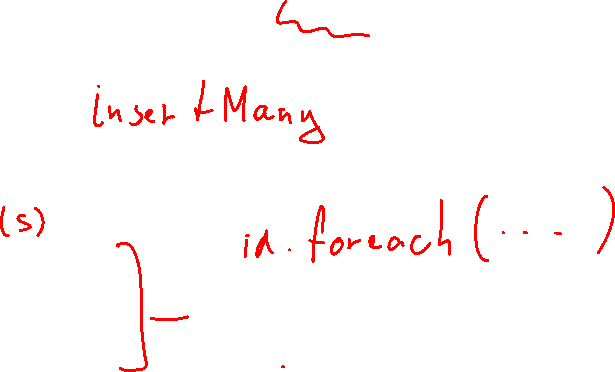 insertMany
(s)
id.foreach(....)